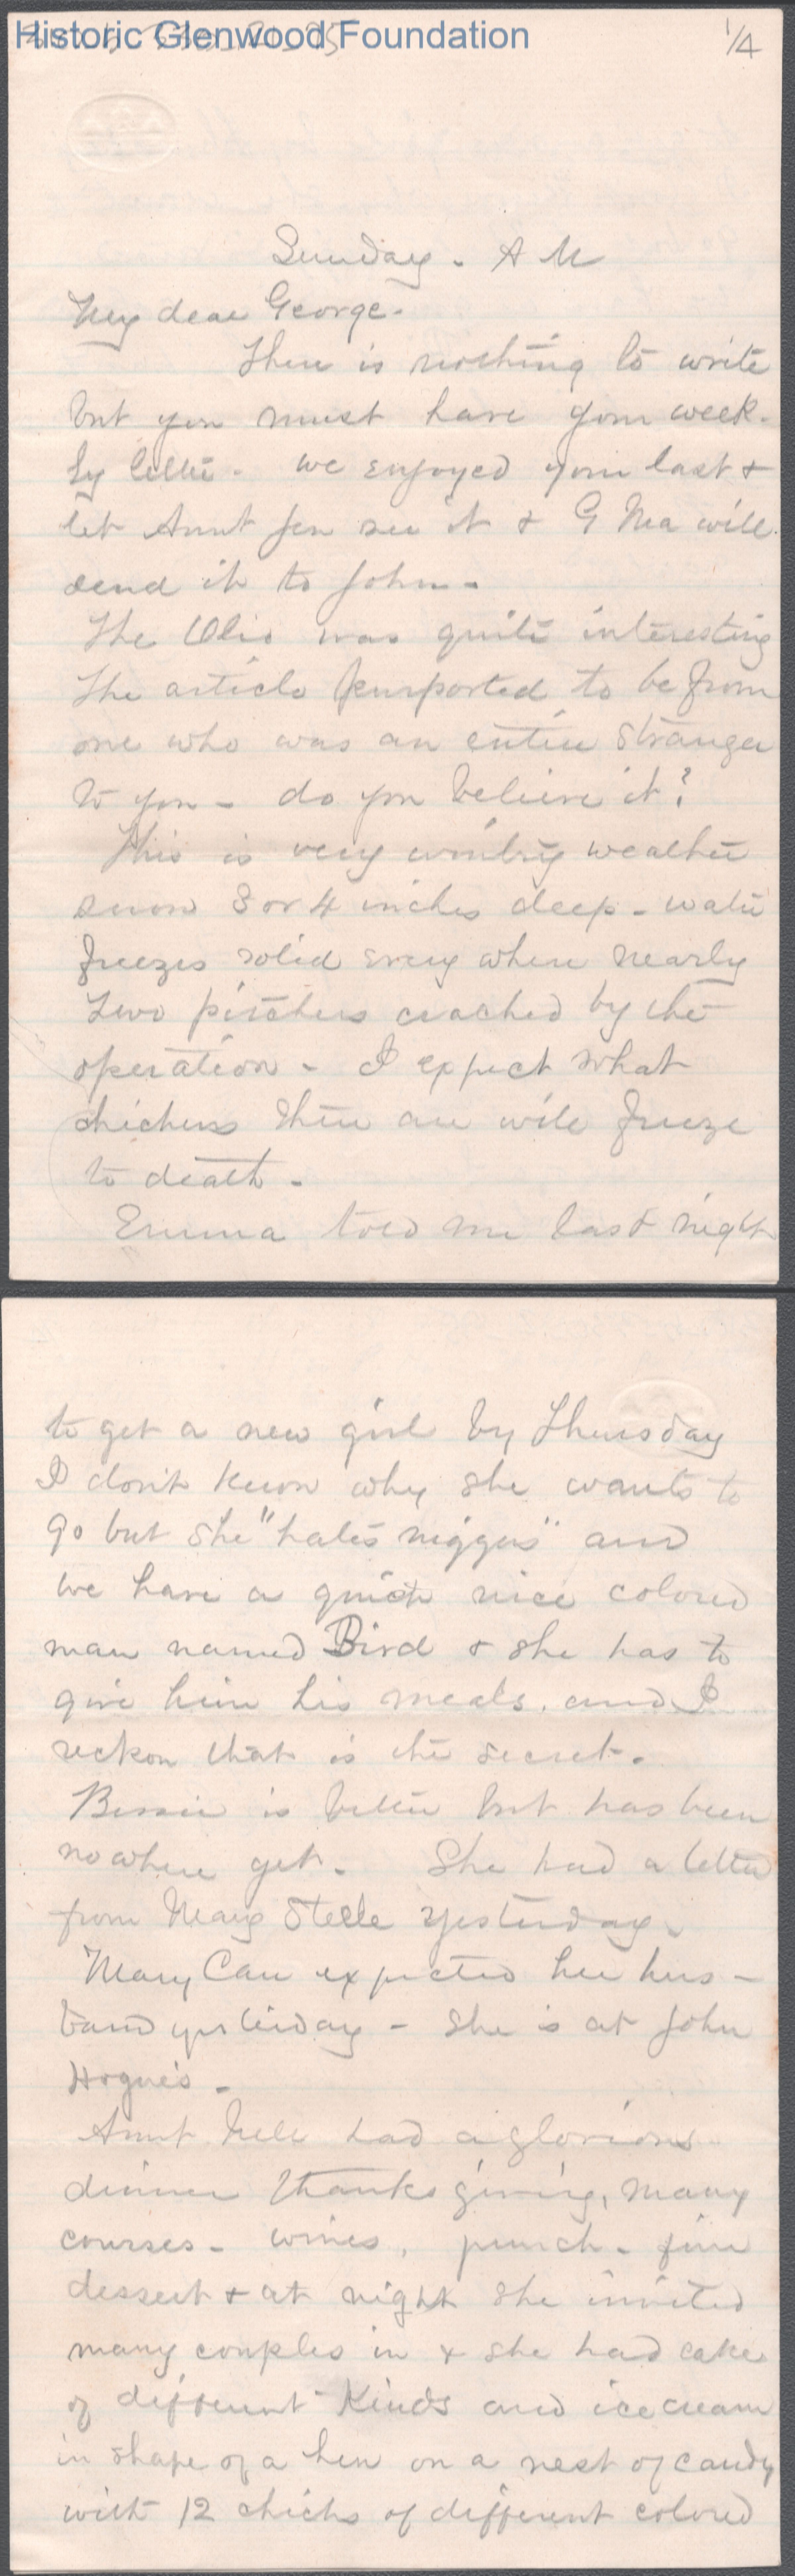 Historic Glenwood Foundation
1/4
Sunday. A M
My dear George.
There is nothing to write
but you must have your week-
ly letter. we enjoyed your last &
let Aunt Jen see it & G Ma will
send it to John.
The Olio was quite interesting
The article purported to be from
one who was an entire stranger
to you - do you believe it?
This is very wintry weather
snow 3 or 4 inches deep - water
freezes solid every where nearly
Two pitchers cracked by the
operation - I expect what
chickens there are will freeze
to death -
Emma told me last night
to get a new girl by Thursday
I don't know why she wants to
go but she "hates niggers" and
we have a quick nice colored
man named Bird & she has to
give him his meals. and I
reckon that is the secret.
Bessie is better but has been
nowhere yet. She had a letter
from Mary Steele yesterday.
Mary Carr expected her hus-
band yesterday - She is at John
Hogue's -
Aunt Nell had a glorious
dinner thanksgiving, many
courses - wines, punch - fine
dessert & at night she invited
many couples in & she had cake
of different Kinds and ice cream
in shape of a hen on a nest of candy
with 12 chicks of different colored